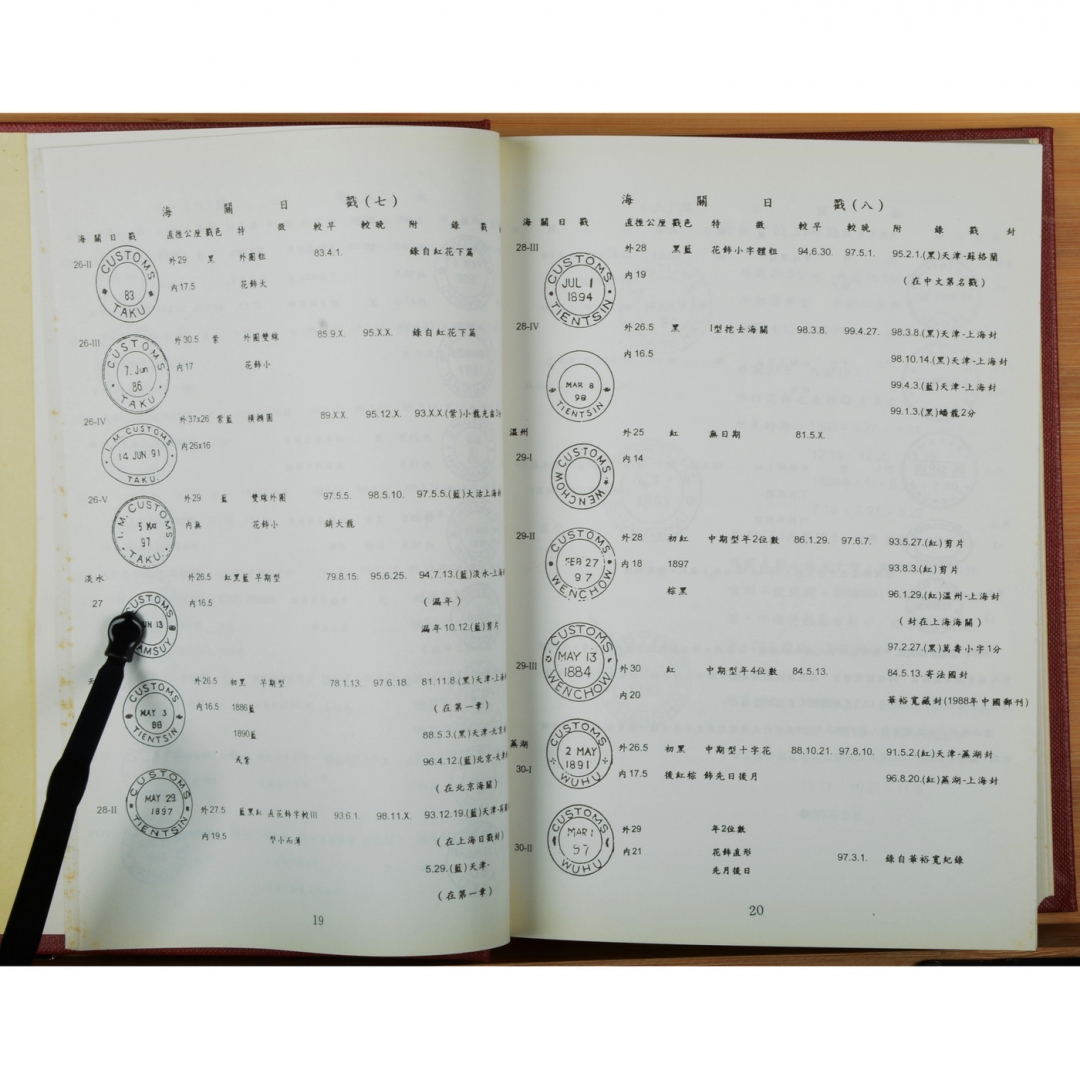 海關日戳(七)
海關日戳 直徑公厘 戳色 特徵 較早 較晚 附錄戳
26-II 外29 黑 外圈粗 83.4.1. 錄自紅花下篇
CUSTOMS 83 TAKU
內17.5 花飾大
26-III 外30.5 紫 外圈雙線 85.9.X. 95.X.X. 錄自紅花下篇
CUSTOMS 7. Jun 86 TAKU.
內17 花飾小
26-IV 外37x26 紫藍 橫橢圓 89.X.X. 95.12.X. 93.X.X.(紫)小龍
I. M. CUSTOMS 14 JUN. 91 TAKU.
內26x16
26-V 外29 藍 雙線外圈 97.5.5. 98.5.10. 97.5.5.(藍)大沽上海
I. M. CUSTOMS 5 97 TAKU.
內無 花飾小 銷大龍
淡水 外26.5 紅黑藍 早期型 79.8.15. 95.6.25. 94.7.13.(藍)淡水-上海
27 內16.5 (漏年)
CUSTOMS UN 13 AMSUY
漏年10.12.(藍)剪片
外26.5 初黑 早期型 78.1.13. 97.6.18. 81.11.8.(黑)天津-上海
CUSTOMS MAY 3 88 TIENTSIN
內16.5 1886藍 (在第一章)
1890藍 88.5.3.(黑)天津-北京
天紫 96.4.12.(藍)北京-天
(在北京海關)
28-II 外27.5 藍黑紅 點花飾字較III 93.6.1. 98.11.X. 93.12.19.(藍)天津-
CUSTOMS MAY 29 1897 TIENTSIN
內19.5 型小而薄 (在上海日戳封)
5.29.(藍)天津-
(在第一章)
19
海關日戳(八)
海關日戳 直徑公厘 戳色 特徵 較早 較晚 附錄戳封
28-III 外28 黑藍 花飾小字體粗 94.6.30. 97.5.1. 95.2.1.(黑)天津-蘇格蘭
CUSTOMS JUL 1 1894 TIENTSIN
內19 (在中文第名戳)
28-IV 外26.5 黑 I型挖去海關 98.3.8. 99.4.27. 98.3.8.(黑)天津-上海封
內16.5 98.10.14.(黑)天津-上海封
MAR 8 98 TIENTSIN
99.4.3.(藍)天津-上海封
99.1.3.(黑)蟠龍2分
溫州 外25 紅 無日期 81.5.X.
29-I 內14
CUSTOMS WENCHOW
29-II 外28 初紅 中期型年2位數 86.1.29. 97.6.7. 93.5.27.(紅)剪片
CUSTOMS FEB 27 97 WENCHOW
內18 1897 93.8.3.(紅)剪片
棕黑 96.1.29.(紅)溫州-上海封
(封在上海海關)
97.2.27.(黑)萬壽小字1分
29-III 外30 紅 中期型年4位數 84.5.13. 84.5.13.寄法國封
CUSTOMS MAY 13 1884 WENCHOW
內20 華裕寬藏封(1988年中國郵刊)
蕪湖 外26.5 初黑 中期型十字花 88.10.21. 97.8.10. 91.5.2.(紅)天津-蕪湖封
30-I 內17.5 後紅棕 飾先日後月 96.8.20.(紅)蕪湖-上海封
CUSTOMS 2 MAY 1891 WUHU
外29 年2位數
CUSTOMS MAR 1 97 WUHU
30-II 內21 花飾直形 97.3.1. 錄自華裕寬紀錄
先月後日
20